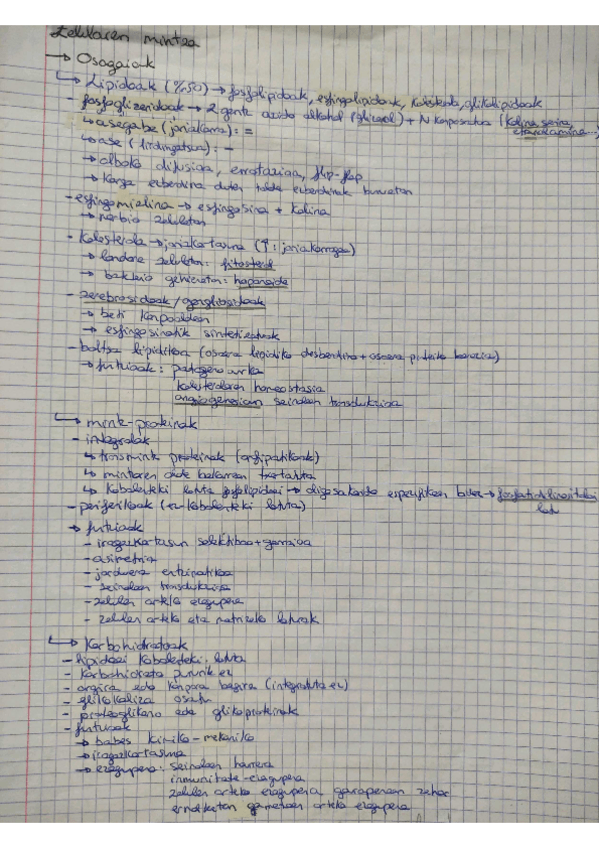 Zelularen mintza
→ Osagaiak
↳ Lipidoak (%50) → fosfolipidoak, esfingolipidoak, kolesterola, glikolipidoak
- fosfoglizeridoak → 2 gantz azido alkohol (glizerol) + N konposatua (kolina, serina, etanolamina...)
↳ asegabe (jariakorra): =
↳ ase (zurdingatsua): -
→ alboko difusioa, errotazioa, flip-flop
→ karga ezberdina duten talde ezberdinak buruetan
- esfingomielina → esfingosina + kolina
→ nerbio zeluletan
- kolesterola → jariakortasuna (↑:
→ landare zeluletan: fitosterol
→ bakterio gehienetan: hopanoide
- zerebrosidoak / gangliosidoak
→ beti kanpoaldean
→ esfingosinatik sintetizatuak
- baltsa lipidikoa (osaera lipidiko desberdina + osaera proteiko berezia)
→ funtzioak: patogeno
kolesterolaren homeostasia
angiogenesian seinaleen transdukzioa
↳ mintz-proteinak
- integralak
↳ transmintz proteinak (anfipatikoak)
↳ mintzaren alde bakarrean txertatuta
↳ kobalenteki lotuta fosfolipidoei → oligosakarido espezifikoen bidez → fosfatidilinositolari lotu
- periferikoak (ez kobalenteki lotuta)
→ funtzioak
- iragazkortasun selektiboa + garraioa
- asimetria
- jarduera entzimatikoa
- seinaleen transdukzioa
- zelulen arteko ezagupena
- zelulen arteko eta matrizeko loturak
↳ Karbohidratoak
- lipidoei kobalenteki lotuta
- karbohidrato pururik ez
- argira edo kanpora begira (integratuta ez)
- glikokaliza osatu
- proteoglikano edo glikoproteinak
- funtzioak
→ babes kimiko-mekaniko
→ iragazkortasuna
→ ezagupena: seinaleen hartzea
inmunitate-ezagupena
zelulen arteko ezagupena garapenean zehar
ernalketan gametoen arteko ezagupena